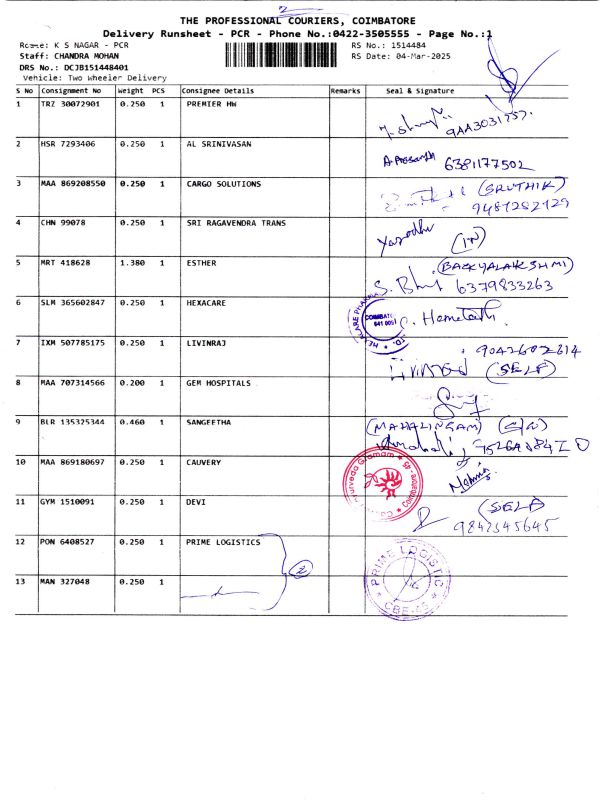 2
THE PROFESSIONAL COURIERS, COIMBATORE
Delivery Runsheet - PCR - Phone No.:0422-3505555 - Page No.:1
Route: K S NAGAR - PCR RS No.: 1514484
Staff: CHANDRA MOHAN RS Date: 04-Mar-2025
DRS No.: DCJB151448401
Vehicle: Two Wheeler Delivery
S No Consignment No Weight PCS Consignee Details Remarks Seal & Signature
1 TRZ 30072901 0.250 1 PREMIER HW
2 HSR 7293406 0.250 1 AL SRINIVASAN
6381177502
3 MAA 869208550 0.250 1 CARGO SOLUTIONS (SRUTHIK)
4 CHN 99078 0.250 1 SRI RAGAVENDRA TRANS
Yasodha
5 MRT 418628 1.380 1 ESTHER (BACKYALAKSHMI)
6379833263
6 SLM 365602847 0.250 1 HEXACARE
HEXACARE COIMBATORE
7 IXM 507785175 0.250 1 LIVINRAJ
9042602614
(SELF)
8 MAA 707314566 0.200 1 GEM HOSPITALS
9 BLR 135325344 0.460 1 SANGEETHA (MAHALINGAM)
10 MAA 869180697 0.250 1 CAUVERY
11 GYM 1510091 0.250 1 DEVI (SELF
9842545645
12 PON 6408527 0.250 1 PRIME LOGISTICS
2
PRIME LOGISTIC
CBE-45
13 MAN 327048 0.250 1